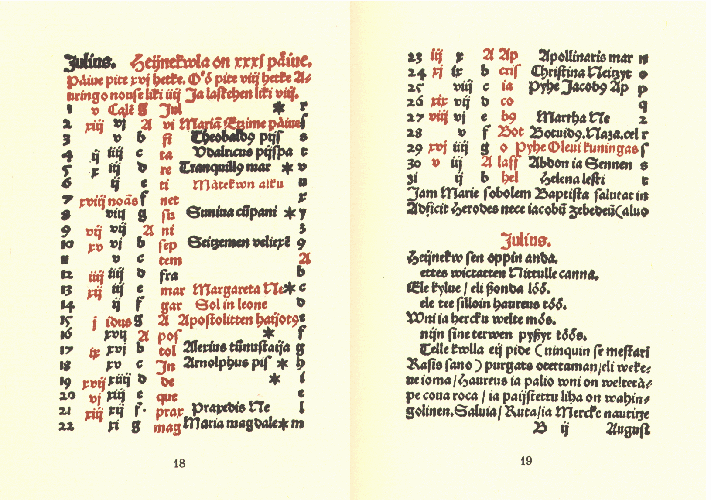 Julius. Heijnekwla on xxxj päiue.
Päiue pite xvj hetke. Oö pite viij hetke Au-
ringo nouse liki iiij Ja laskehen liki viij.
1 v Cale g Jul ✱ r
2 xiij vj A vi Mariā Etzime päiue s
3 v b si Theobald9 pijs
4 ij iiij c ta Vdalricus pijspa t
5 x iij d re Tranquill9 mar ✱ v
6 ij e ti Mätekwn alku
7 xviij noās f net
8 viij g su Sunina cūpani ✱ y
9 vij vij A ni
10 xv vj b sep Seitzemen veliexē 9
11 v c tem A
12 iiij iiij d fra b
13 xij iij e mar Margareta Ne ✱ c
14 ij f gar Sol in leone d
15 j idus g A Apostolitten hatjot9 e
16 xvij A pos f
17 ix xvj b tol Alexius tūnustaija g
18 xv c Jn Arnolphus pis ✱ h
19 xvij xiiij d de ✱ i
20 vj xiij e que
21 xiiij xij f prax Praxedis Ne l
22 xj g mag Maria magdale ✱ m
18
23 iij x A Ap Apollinaris mar n
24 xj ix b cris Christina Neitzyt o
25 viij c ia Pyhe Jacob9 Ap p
26 xix vij d co q
27 viij vj e b9 Martha Ne 2
28 v f Bot Botuid9. Naza. cel r
29 xvj iiij g o Pyhe Oleui kuningas s
30 v iij A laff Abdon ia Sennen s
31 ij b hel Helena leski t
Jam Marie sobolem Baptista salutat in
Adficit Herodes nece iacobū zebedeū (aluo
Julius.
Heijnekw sen oppin anda.
ettes wictatten Nittulle canna.
Ele kylue / eli ßonda löö.
ele tee silloin haureus töö.
Wni ia hercku welte mös.
nijn sine terwen pyßyt töös.
Telle kwlla eij pide (ninquin se mestari
Rasis sano) purgats otettaman / eli weke-
ue ioma / Haureus ia palio wni on weltetä-
pe coua roca / ia paijstettu liha on wahin-
golinen. Saluia / Ruta / ia Mercke nautitze
B ij August
19